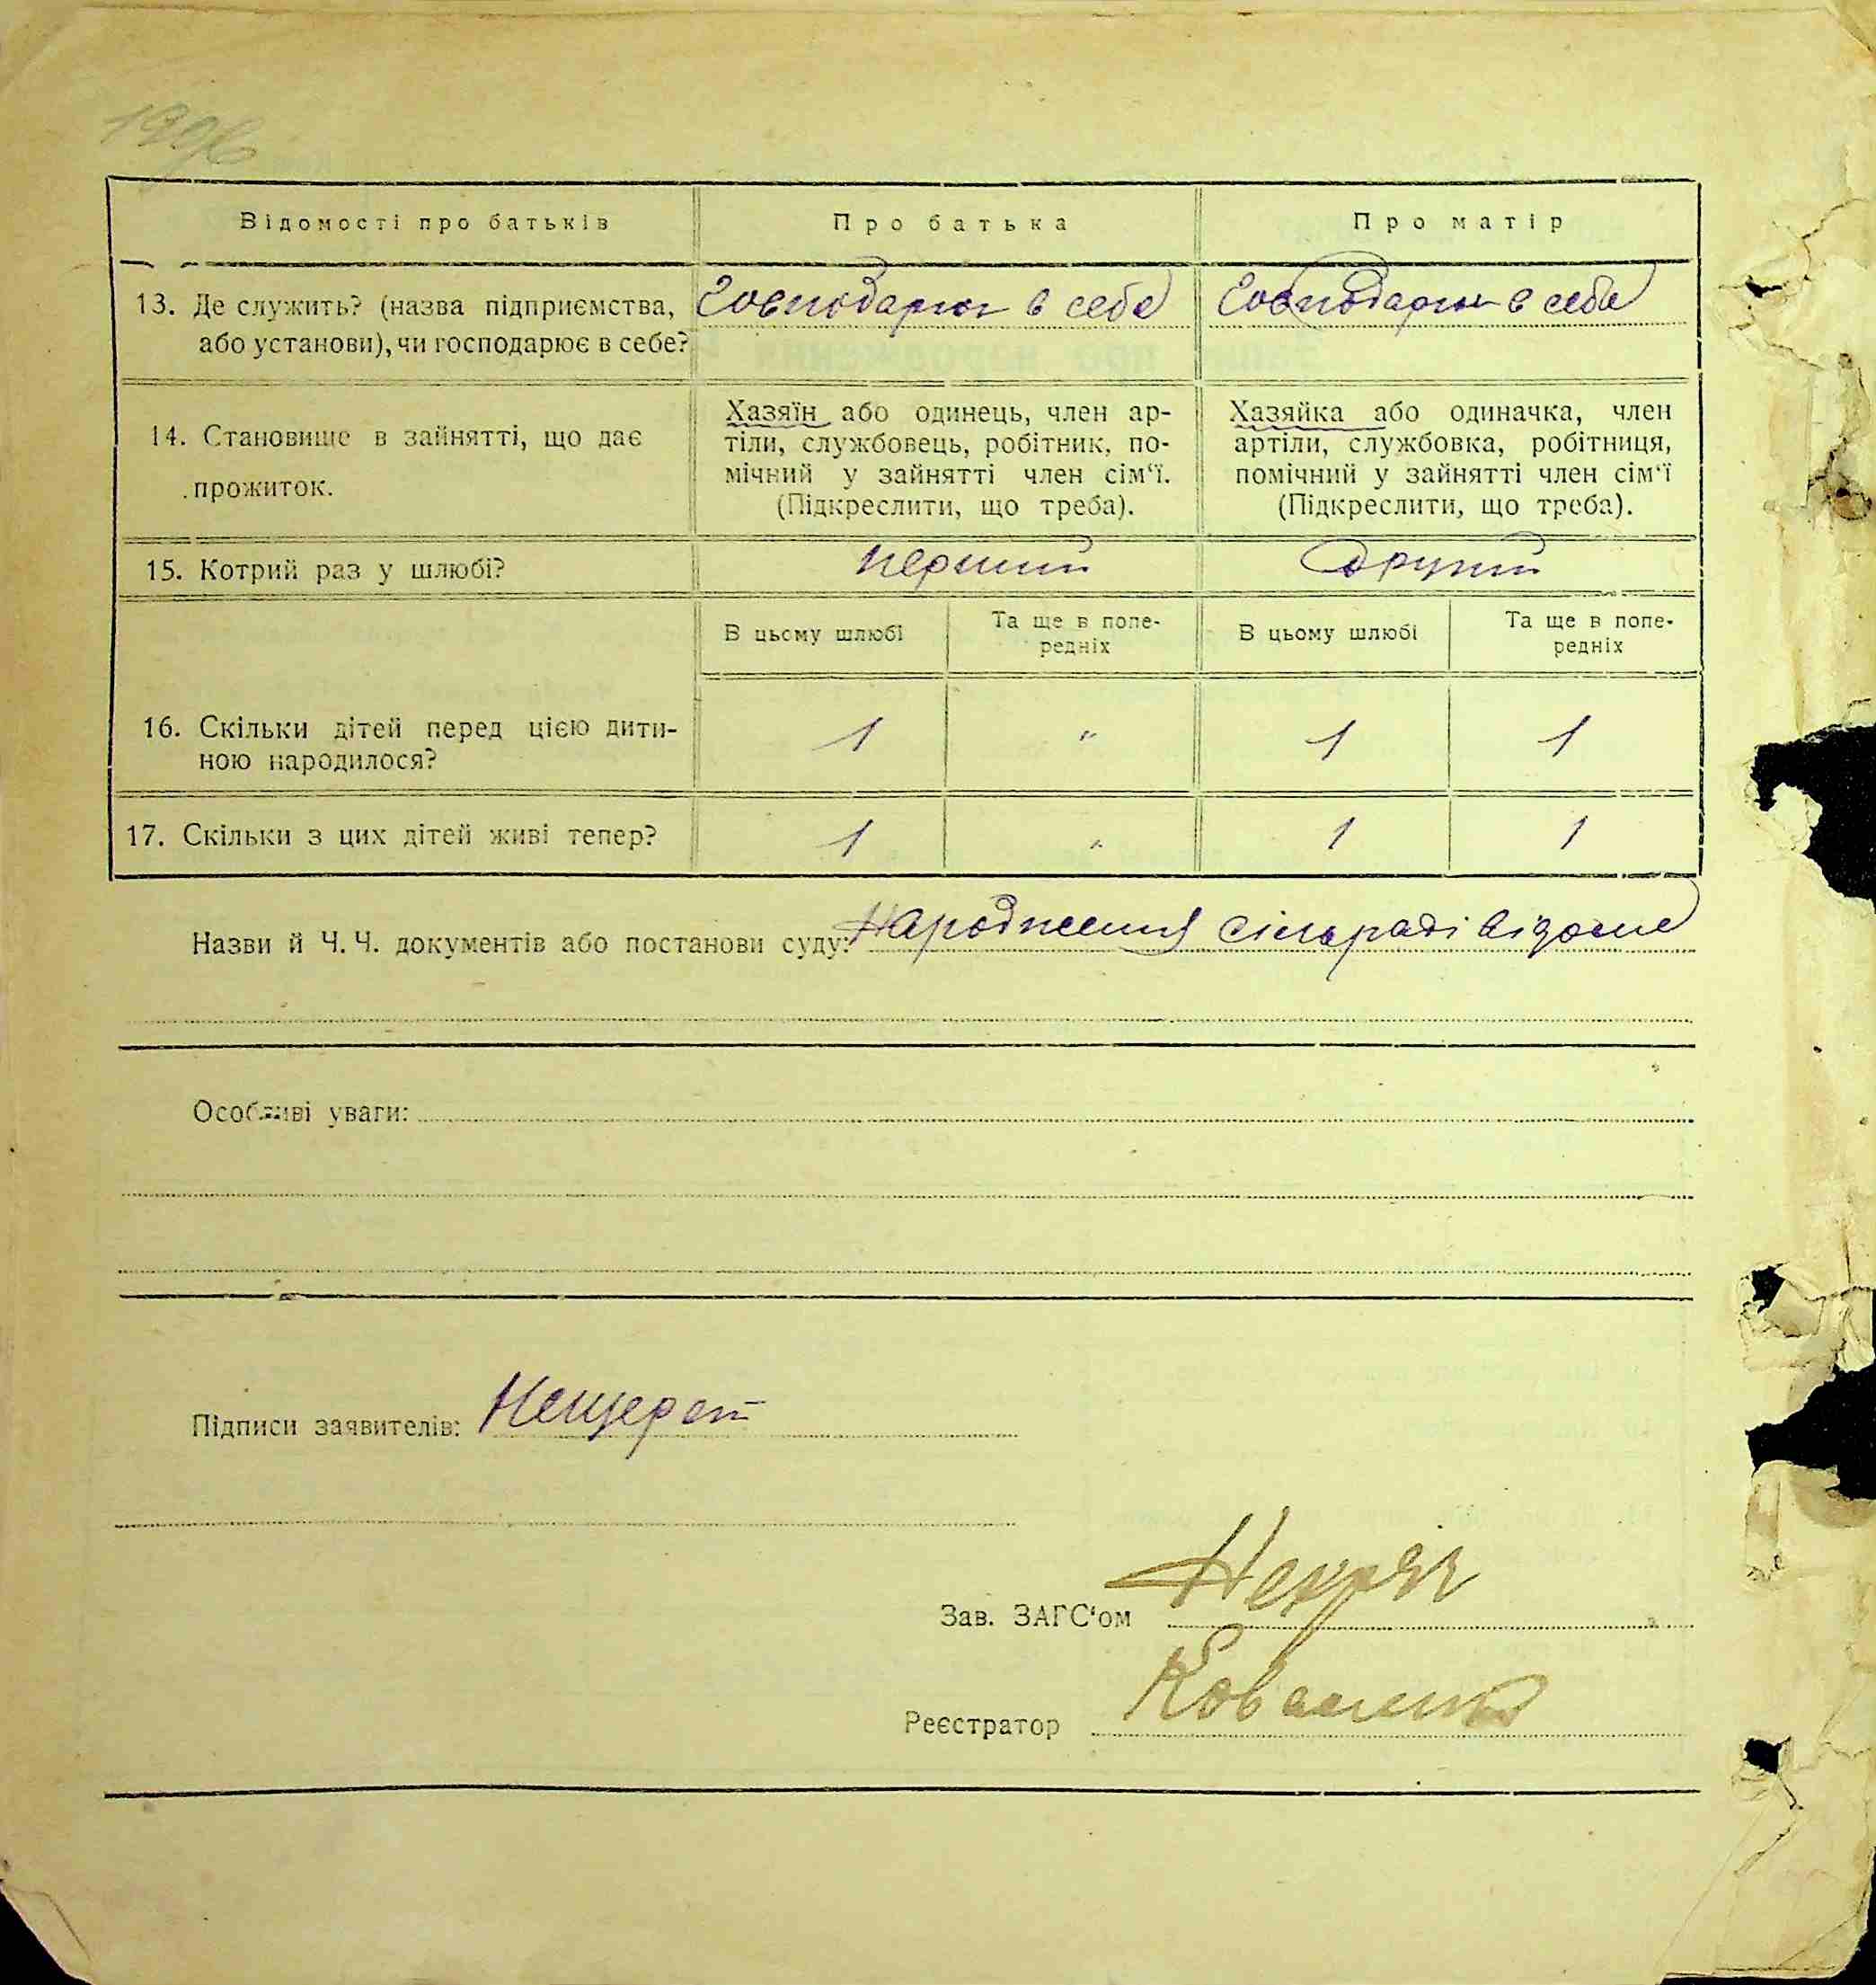 Відомості про батьків
Про батька
Про матір
13. Де служить? (назва підприємства, або установи), чи господарює в себе?
Господарює в себе
Господарює в себе
14. Становище в зайнятті, що дає прожиток.
Хазяїн або одинець, член ар-
тіли, службовець, робітник, по-
мічний у зайнятті член сім‘ї.
(Підкреслити, що треба).
Хазяйка або одиначка, член
артіли, службовка, робітниця,
помічний у зайнятті член сім‘ї
(Підкреслити, що треба).
15. Котрий раз у шлюбі?
перший
другий
В цьому шлюбі
Та ще в попе-
редніх
В цьому шлюбі
Та ще в попе-
редніх
16. Скільки дітей перед цією дити-
ною народилося?
1
"
1
1
17. Скільки з цих дітей живі тепер?
1
"
1
1
Назви й Ч. Ч. документів або постанови суду: Народження сільраді відоме
Особливі уваги:
Підписи заявителів:
Зав. ЗАГС‘ом
Реєстратор Коваленко